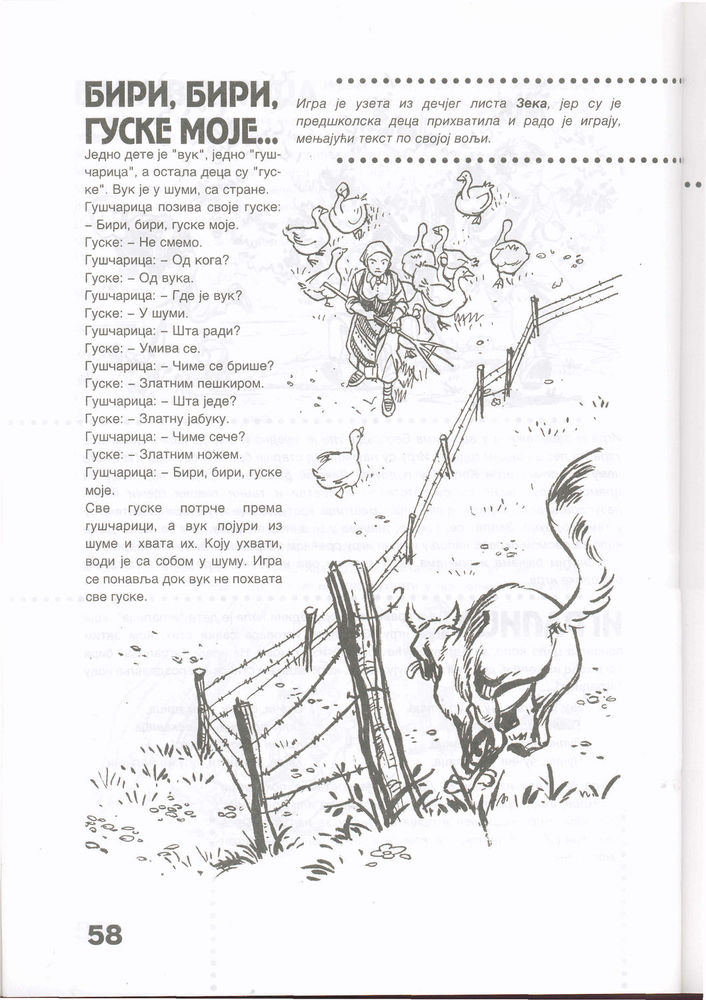 БИРИ, БИРИ,
ГУСКЕ МОЈЕ...
Игра је узета из дечјег листа Зека, јер су је
предшколска деца прихватила и радо је играју,
мењајући текст по својој вољи.
Једно дете је "вук", једно "гуш-
чарица", а остала деца су "гус-
ке". Вук је у шуми, са стране.
Гушчарица позива своје гуске:
– Бири, бири, гуске моје.
Гуске: – Не смемо.
Гушчарица: – Од кога?
Гуске: – Од вука.
Гушчарица: – Где је вук?
Гуске: – У шуми.
Гушчарица: – Шта ради?
Гуске: – Умива се.
Гушчарица: – Чиме се брише?
Гуске: – Златним пешкиром.
Гушчарица: – Шта једе?
Гуске: – Златну јабуку.
Гушчарица: – Чиме сече?
Гуске: – Златним ножем.
Гушчарица: – Бири, бири, гуске
моје.
Све гуске потрче према
гушчарици, а вук појури из
шуме и хвата их. Коју ухвати,
води је са собом у шуму. Игра
се понавља док вук не похвата
све гуске.
58